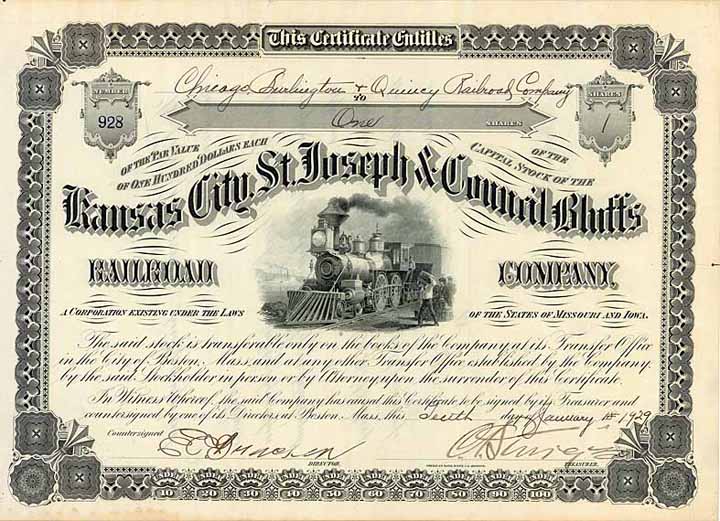 This Certificate Entitles
NUMBER
928
Chicago Burlington & Quincy Railroad Company
TO
One SHARES
SHARES
1
OF THE PAR VALUE
OF ONE HUNDRED DOLLARS EACH
OF THE
CAPITAL STOCK OF THE
Kansas City, St. Joseph & Council Bluffs
RAILROAD COMPANY
A CORPORATION EXISTING UNDER THE LAWS OF THE STATES OF MISSOURI AND IOWA.
The said stock is transferable only on the books of the Company at its Transfer Office
in the City of Boston, Mass. and at any other Transfer Office established by the Company,
by the said Stockholder in person or by Attorney, upon the surrender of this Certificate.
In Witness Whereof, the said Company has caused this Certificate to be signed by its Treasurer and
countersigned by one of its Directors at Boston, Mass. this Tenth day of January 1929
Countersigned
DIRECTOR. TREASURER.
10 20 30 40 50 60 70 80 90 100